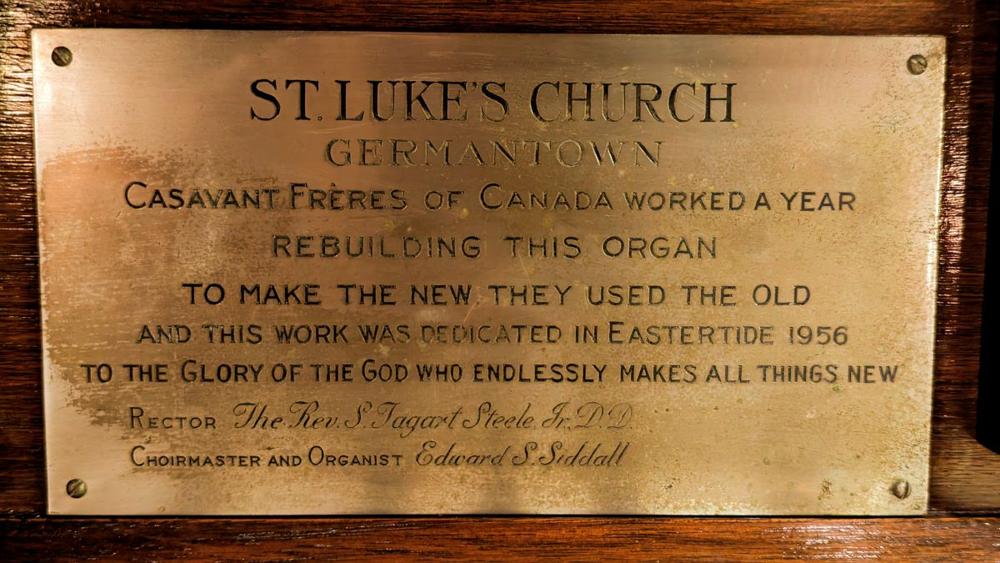 ST. LUKE'S CHURCH
GERMANTOWN
CASAVANT FRÈRES OF CANADA WORKED A YEAR
REBUILDING THIS ORGAN
TO MAKE THE NEW THEY USED THE OLD
AND THIS WORK WAS DEDICATED IN EASTERTIDE 1956
TO THE GLORY OF THE GOD WHO ENDLESSLY MAKES ALL THINGS NEW
RECTOR The Rev. S. Tagart Steele, Jr. D.D.
CHOIRMASTER AND ORGANIST Edward S. Siddall